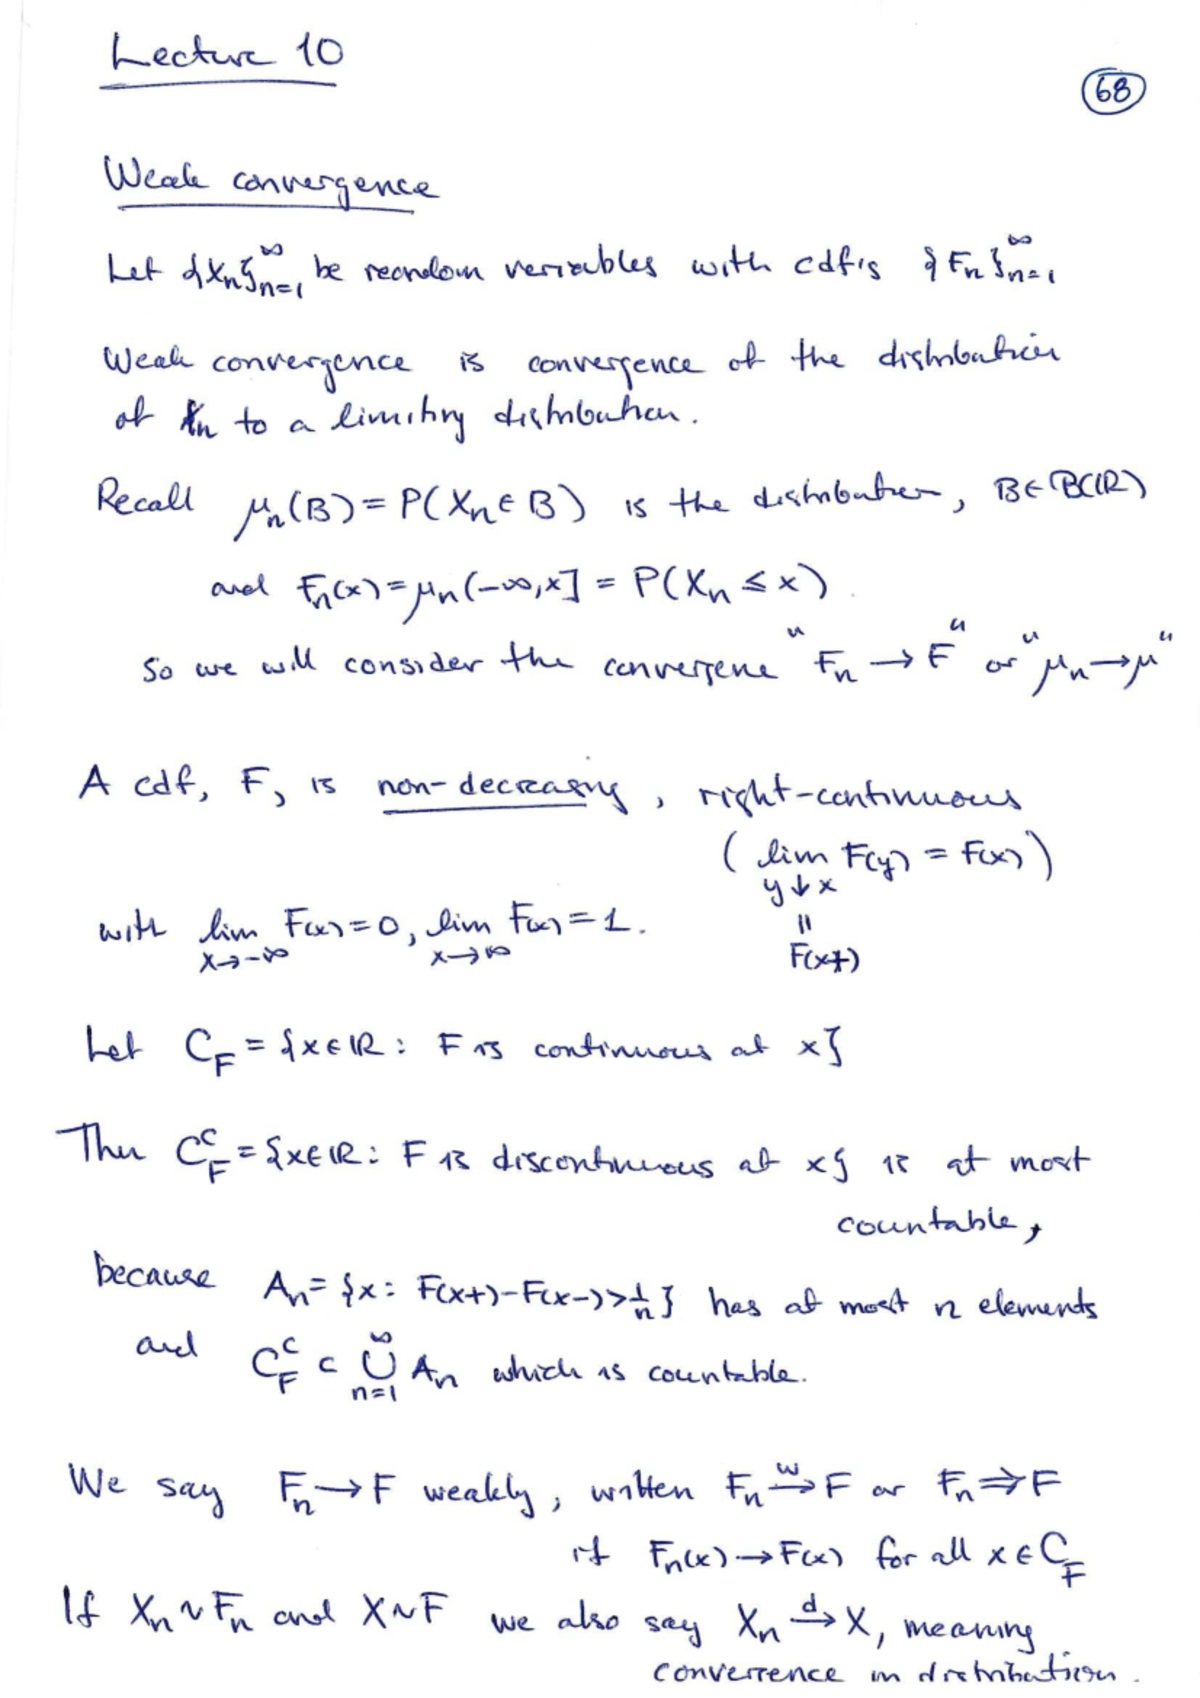 Lecture 10
68
Weak convergence
Let {Xn}_{n=1}^∞ be random variables with cdf's {Fn}_{n=1}^∞
Weak convergence is convergence of the distribution
of Xn to a limiting distribution.
Recall μn(B) = P(Xn ∈ B) is the distribution, B ∈ B(ℝ)
and Fn(x) = μn(-∞,x] = P(Xn ≤ x).
So we will consider the convergene "Fn → F" or "μn → μ"
A cdf, F, is non-decreasing, right-continuous
( lim_{y↓x} F(y) = F(x) )
with lim_{x→-∞} F(x) = 0, lim_{x→∞} F(x) = 1.
||
F(x+)
Let C_F = {x ∈ ℝ : F is continuous at x}
Then C_F^c = {x ∈ ℝ : F is discontinuous at x} is at most
countable,
because An = {x : F(x+) - F(x-) > 1/n} has at most n elements
and C_F^c ⊂ ⋃_{n=1}^∞ An which is countable.
We say Fn → F weakly, written Fn →^w F or Fn ⇒ F
if Fn(x) → F(x) for all x ∈ C_F
If Xn ~ Fn and X ~ F we also say Xn →^d X, meaning
convergence in distribution.